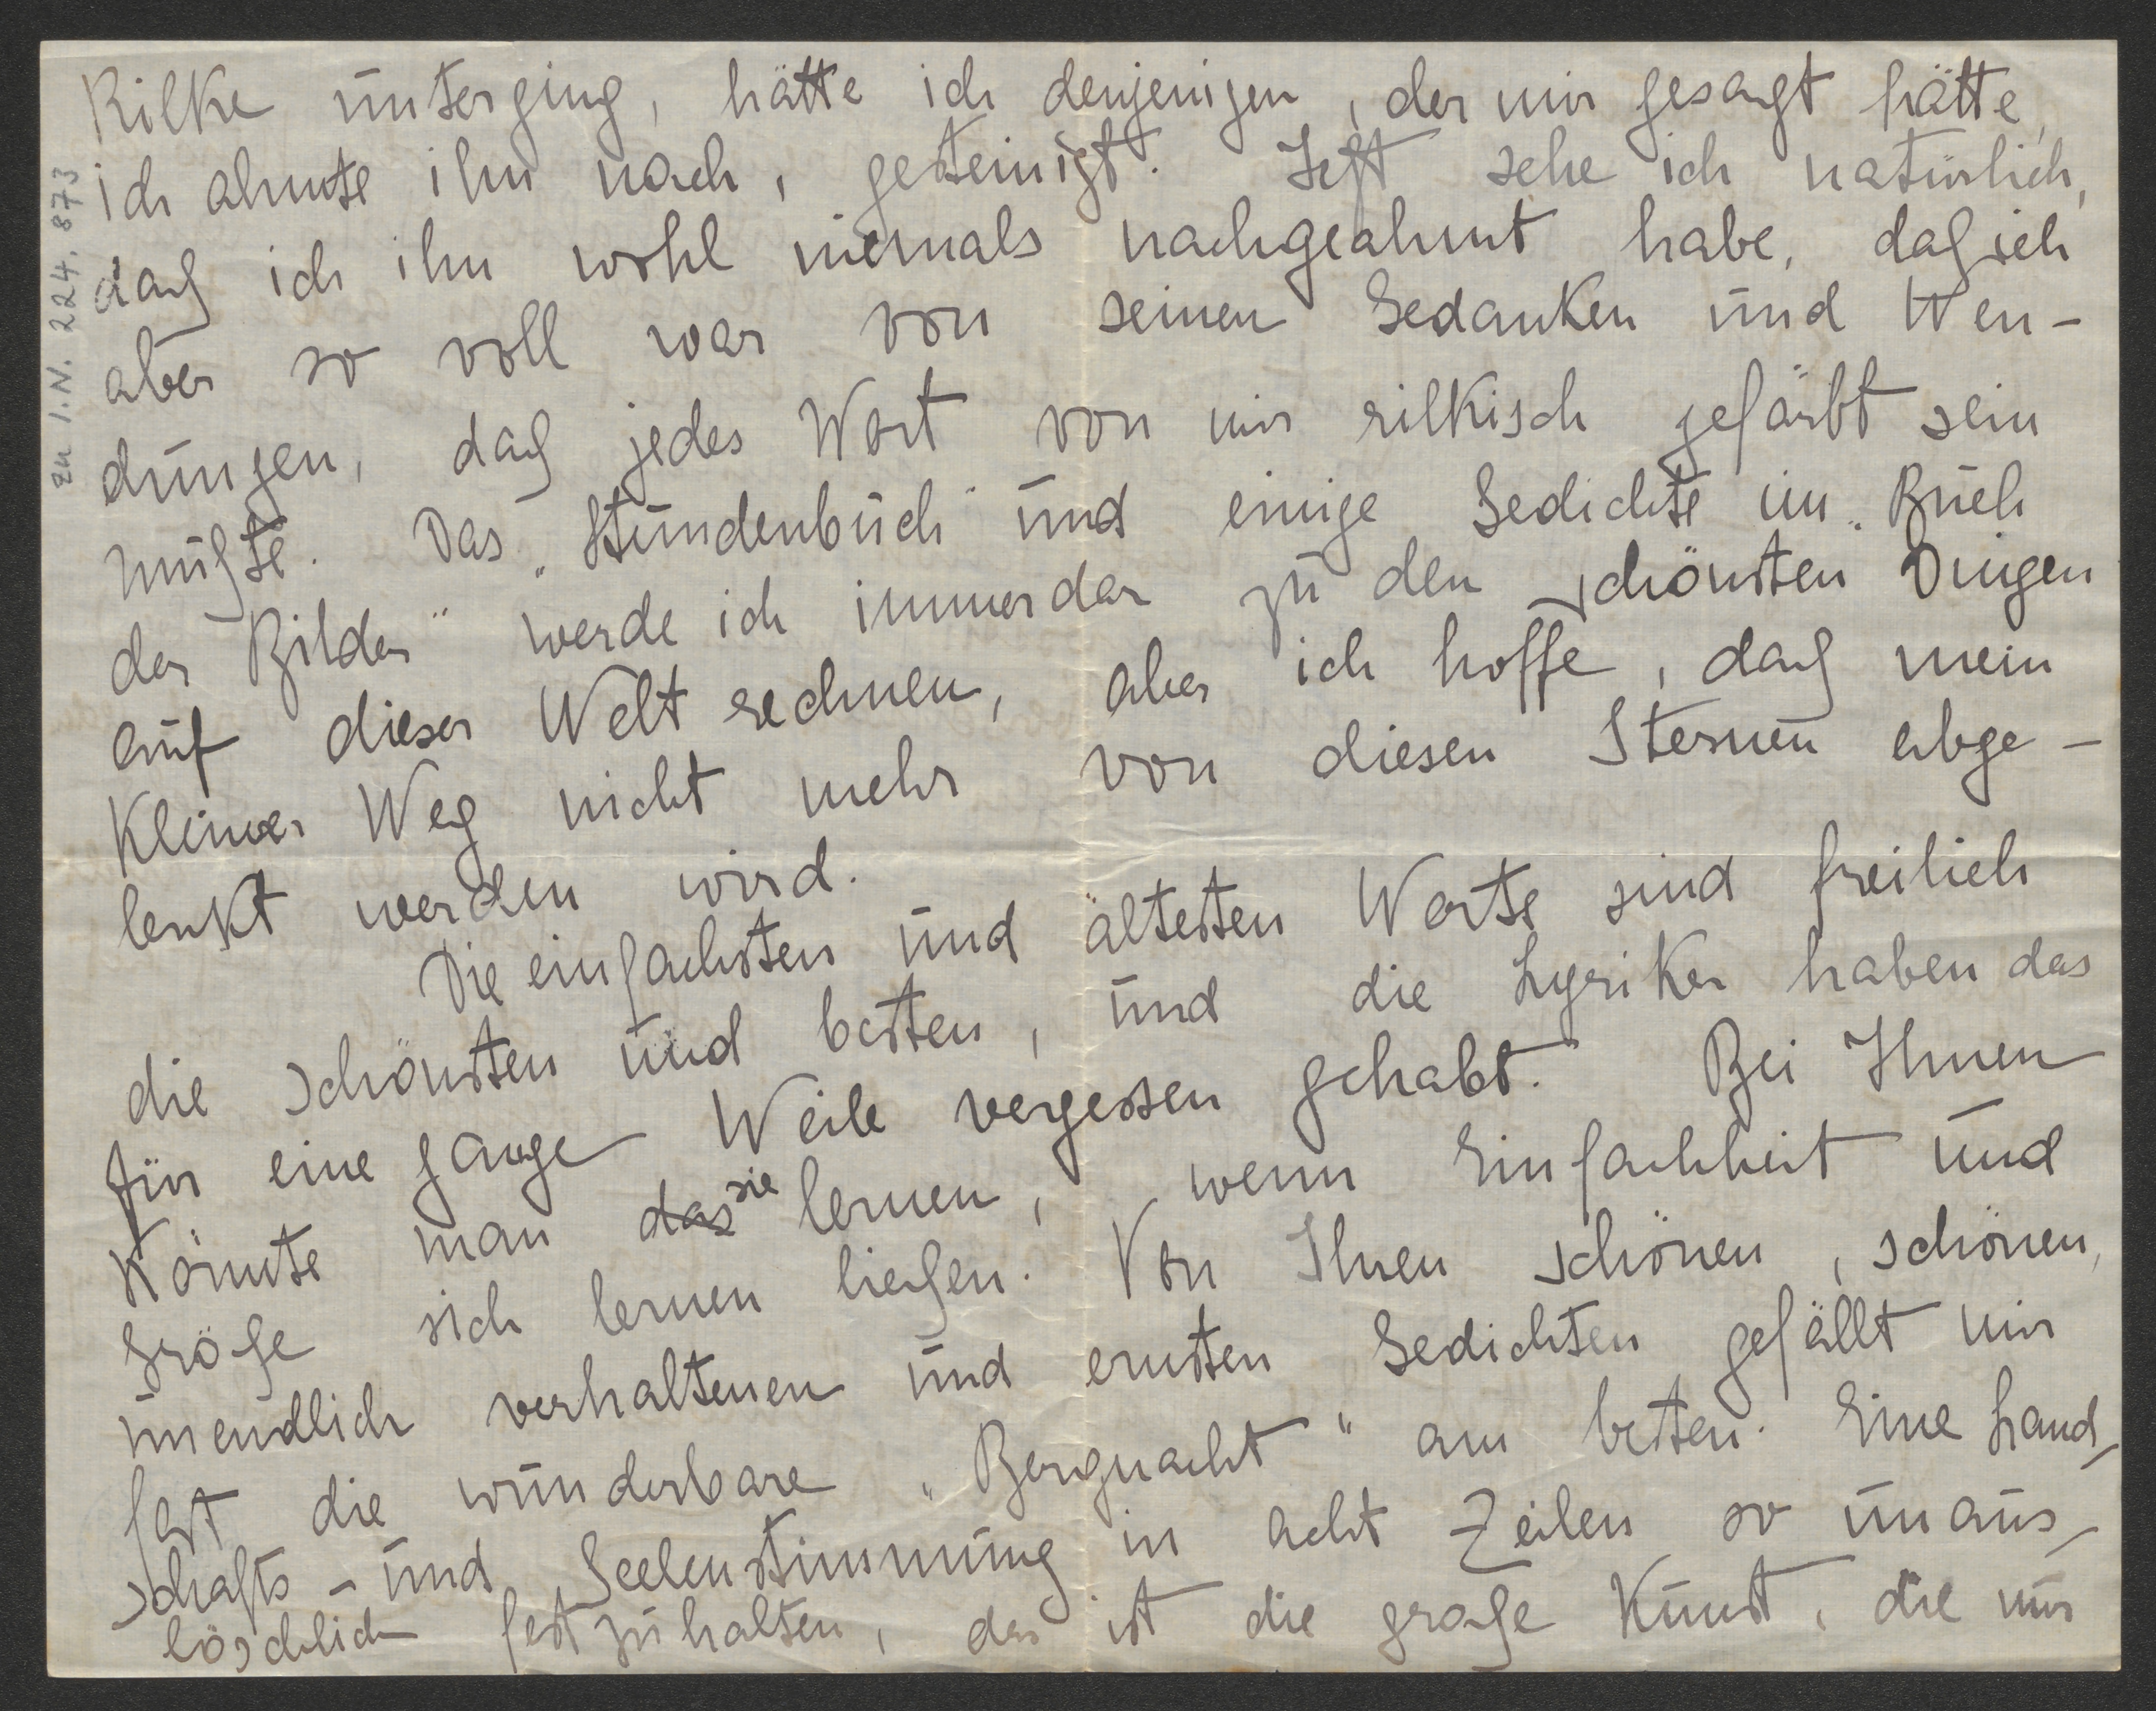 Rilke unterging, hätte ich denjenigen, der mir gesagt hätte,
ich ahmte ihn nach, gesteinigt. Jetzt sehe ich natürlich,
daß ich ihn wohl niemals nachgeahmt habe, daß ich
aber so voll war von seinen Gedanken und Wen-
dungen, daß jedes Wort von mir rilkisch gefärbt sein
mußte. Das „Stundenbuch" und einige Gedichte im „Buch
der Bilder" werde ich immerdar zu den schönsten Dingen
auf dieser Welt rechnen, aber ich hoffe, daß mein
kleiner Weg nicht mehr von diesen Sternen abge-
lenkt werden wird.
Die einfachsten und ältesten Worte sind freilich
die schönsten und besten, und die Lyriker haben das
für eine ganze Weile vergessen gehabt. Bei Ihnen
könnte man das sie lernen, wenn Einfachheit und
Größe sich lernen ließen. Von Ihren schönen, schönen,
unendlich verhaltenen und ernsten Gedichten gefällt mir
fast die wunderbare „Bergnacht" am besten. Eine Land-
schafts- und Seelenstimmung in acht Zeilen so unaus-
löschlich festzuhalten, das ist die große Kunst, die nur
zu I.N. 224.873